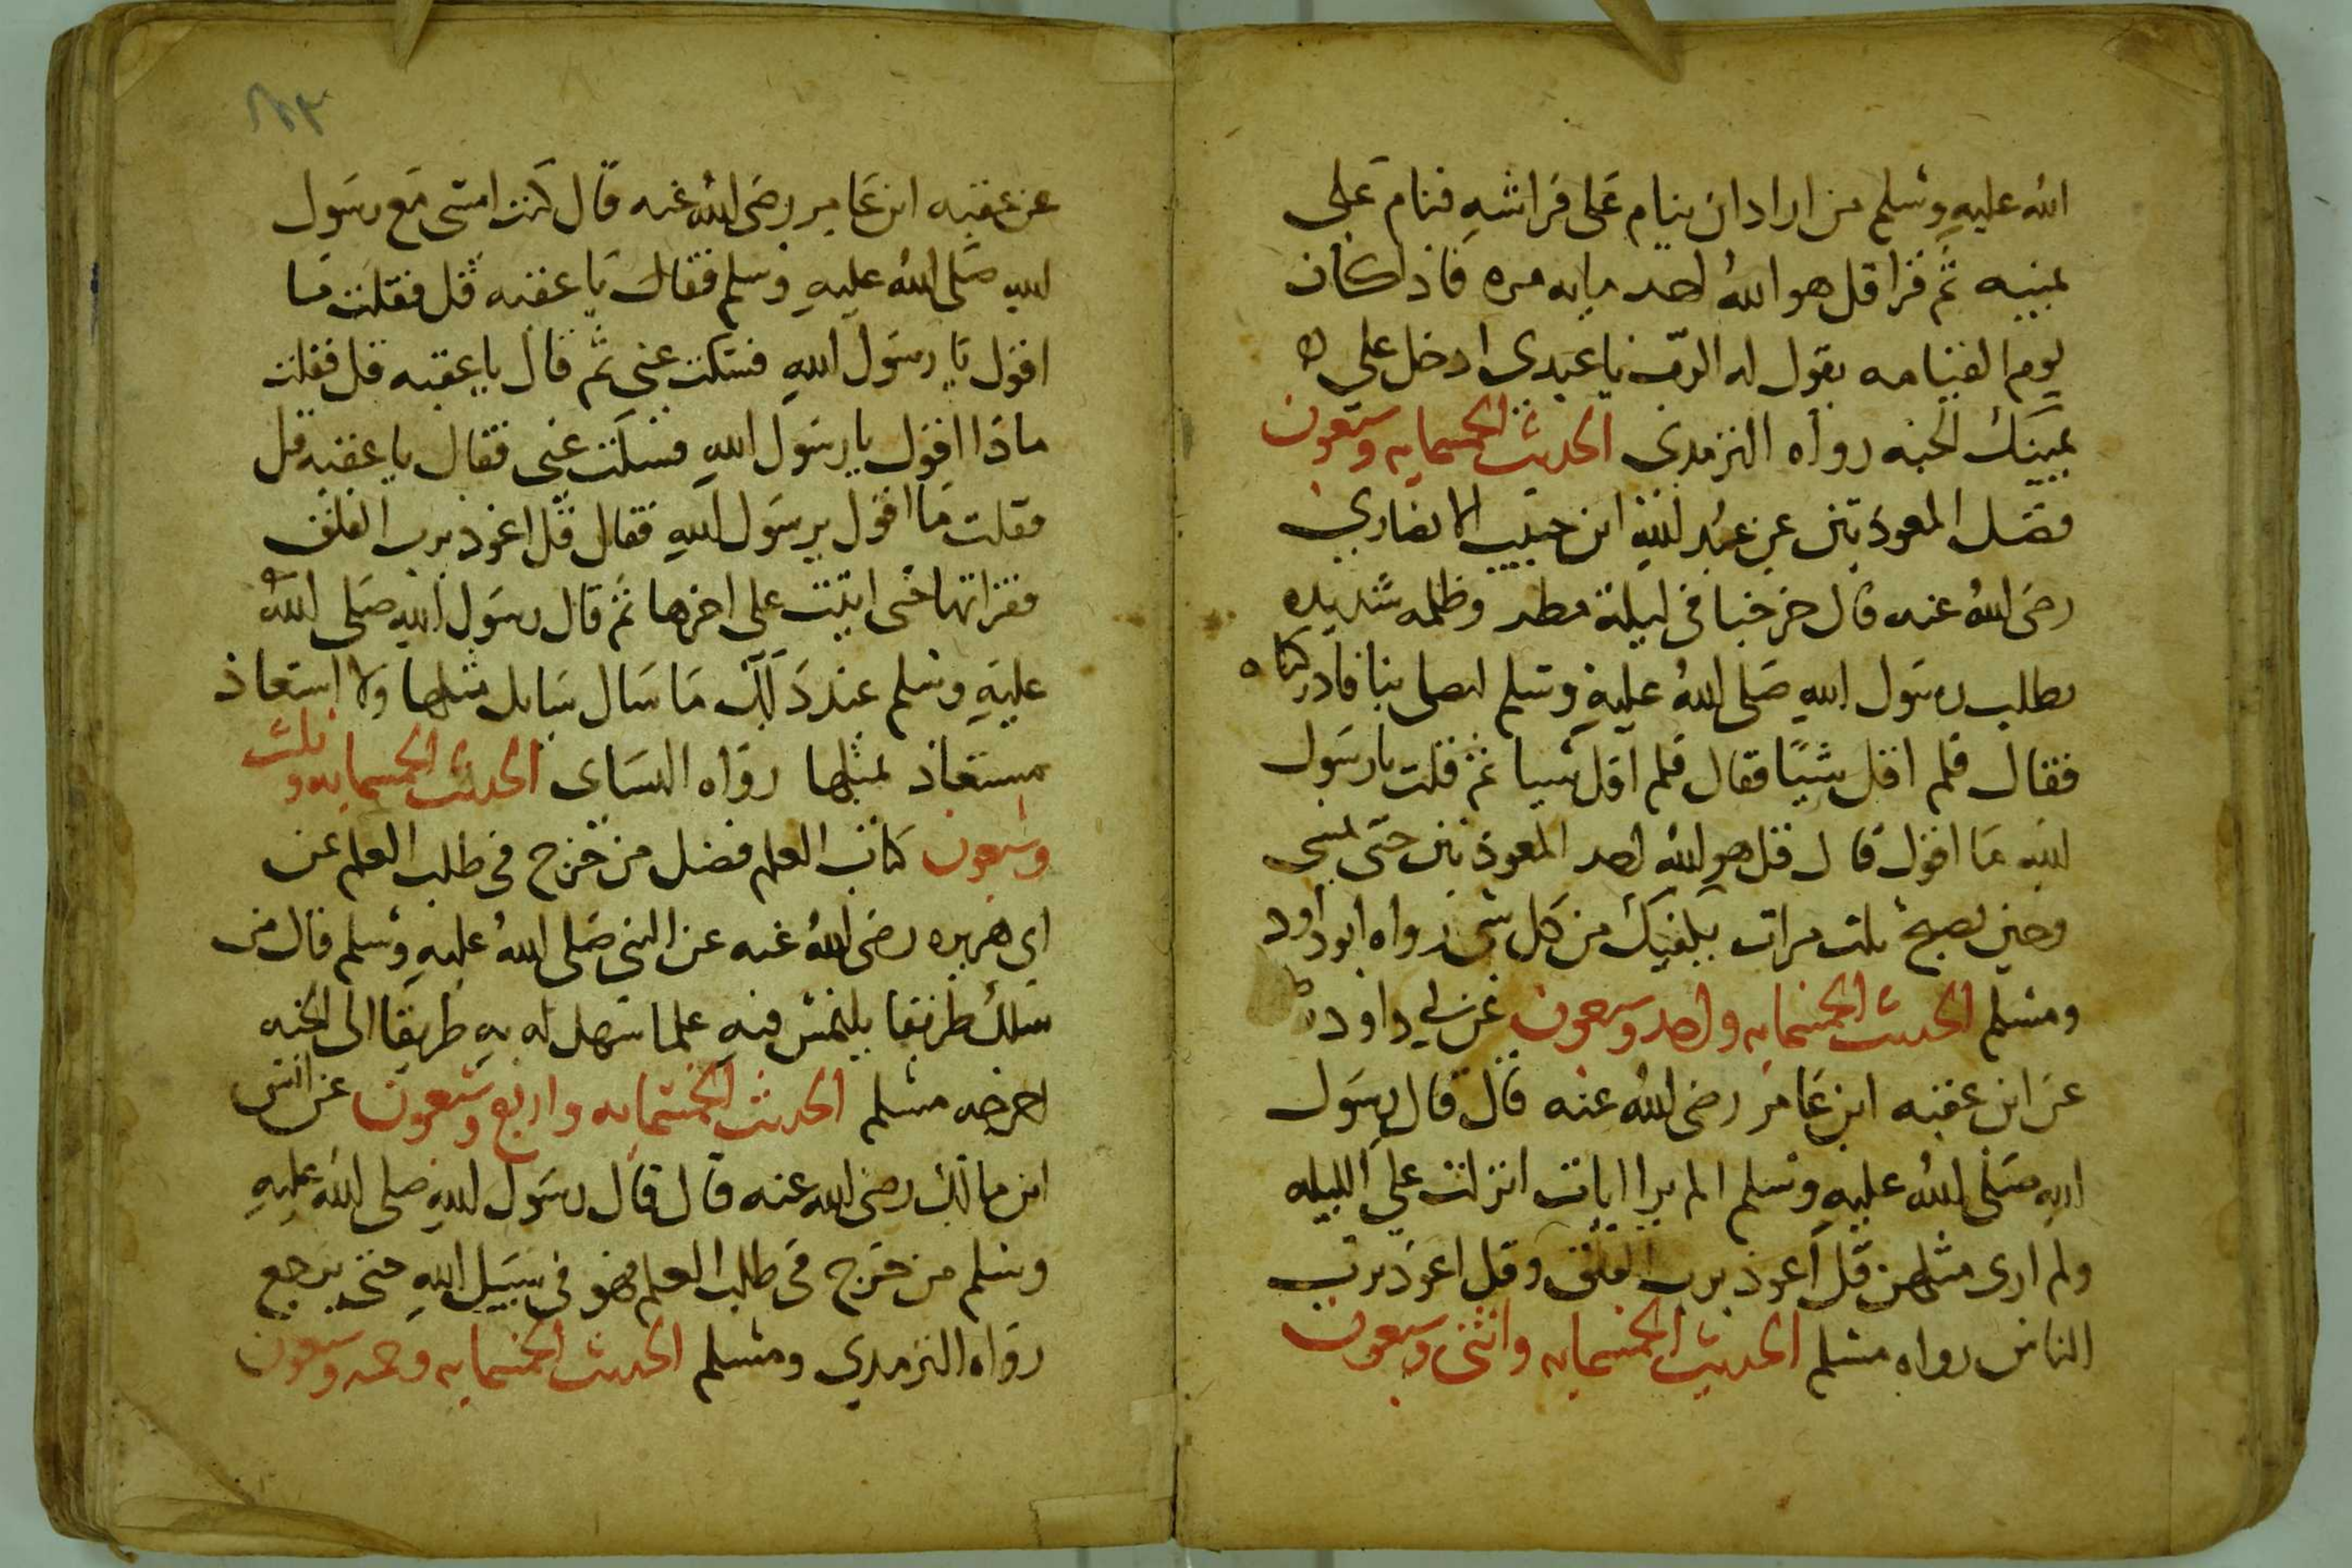 الله عليه وسلم من اراد ان ينام على فراشه فنام على
يمينه ثم قرا قل هو الله احد مايه مره فاذا كان
يوم القيامه يقول له الرب يا عبدي ادخل على
يمينك الجنه رواه الترمدي الحديث الخمسمايه وسبعون
فضل المعوذتين عن عبد الله ابن حبيب الانصاري
رضى الله عنه قال خرجنا في ليلة مطر وظلمه شديده
نطلب رسول الله صلى الله عليه وسلم ليصلى بنا فادركناه
فقال فلم اقل شيئا فقال فلم اقل شيا ثم قلت يا رسول
الله ما اقول قال قل هو الله احد المعوذتين حتى تمسي
وحين تصبح ثلث مرات يكفيك من كل شى رواه ابو داود
ومسلم الحديث الخمسمايه واحد وسبعون عن ابي داود
عن ابن عقبه ابن عامر رضى الله عنه قال قال رسول
الله صلى الله عليه وسلم الم يرا ايات انزلت علي الليله
ولم ارى مثلهن قل اعوذ برب الفلق وقل اعوذ برب
الناس رواه مسلم الحديث الخمسمايه واثنى وسبعون
عن عقبه ابن عامر رضى الله عنه قال كنت امشى مع رسول
الله صلى الله عليه وسلم فقال يا عقبه قل فقلت ما
اقول يا رسول الله فسكت عني ثم قال يا عقبه قل فقلت
ماذا اقول يا رسول الله فسكت عني فقال يا عقبه قل
فقلت ما اقول يرسول الله فقال قل اعوذ برب الفلق
فقراتها حتى اتيت على اخرها ثم قال رسول الله صلى الله
عليه وسلم عند ذلك ما سال سايل مثلها ولا استعاذ
مستعاذ بمثلها رواه النساى الحديث الخمسمايه و ثلث
وسبعون كتاب العلم فضل من خرج في طلب العلم عن
ابى هريره رضى الله عنه عن النبي صلى الله عليه وسلم قال من
سلك طريقا يلتمس فيه علما سهل له به طريقا الى الجنه
اخرجه مسلم الحديث الخمسمايه واربع وسبعون عن انس
ابن مالك رضى الله عنه قال قال رسول الله صلى الله عليه
وسلم من خرج في طلب العلم فهو في سبيل الله حتى يرجع
رواه الترمدي ومسلم الحديث الخمسمايه وخمسه وسبعون